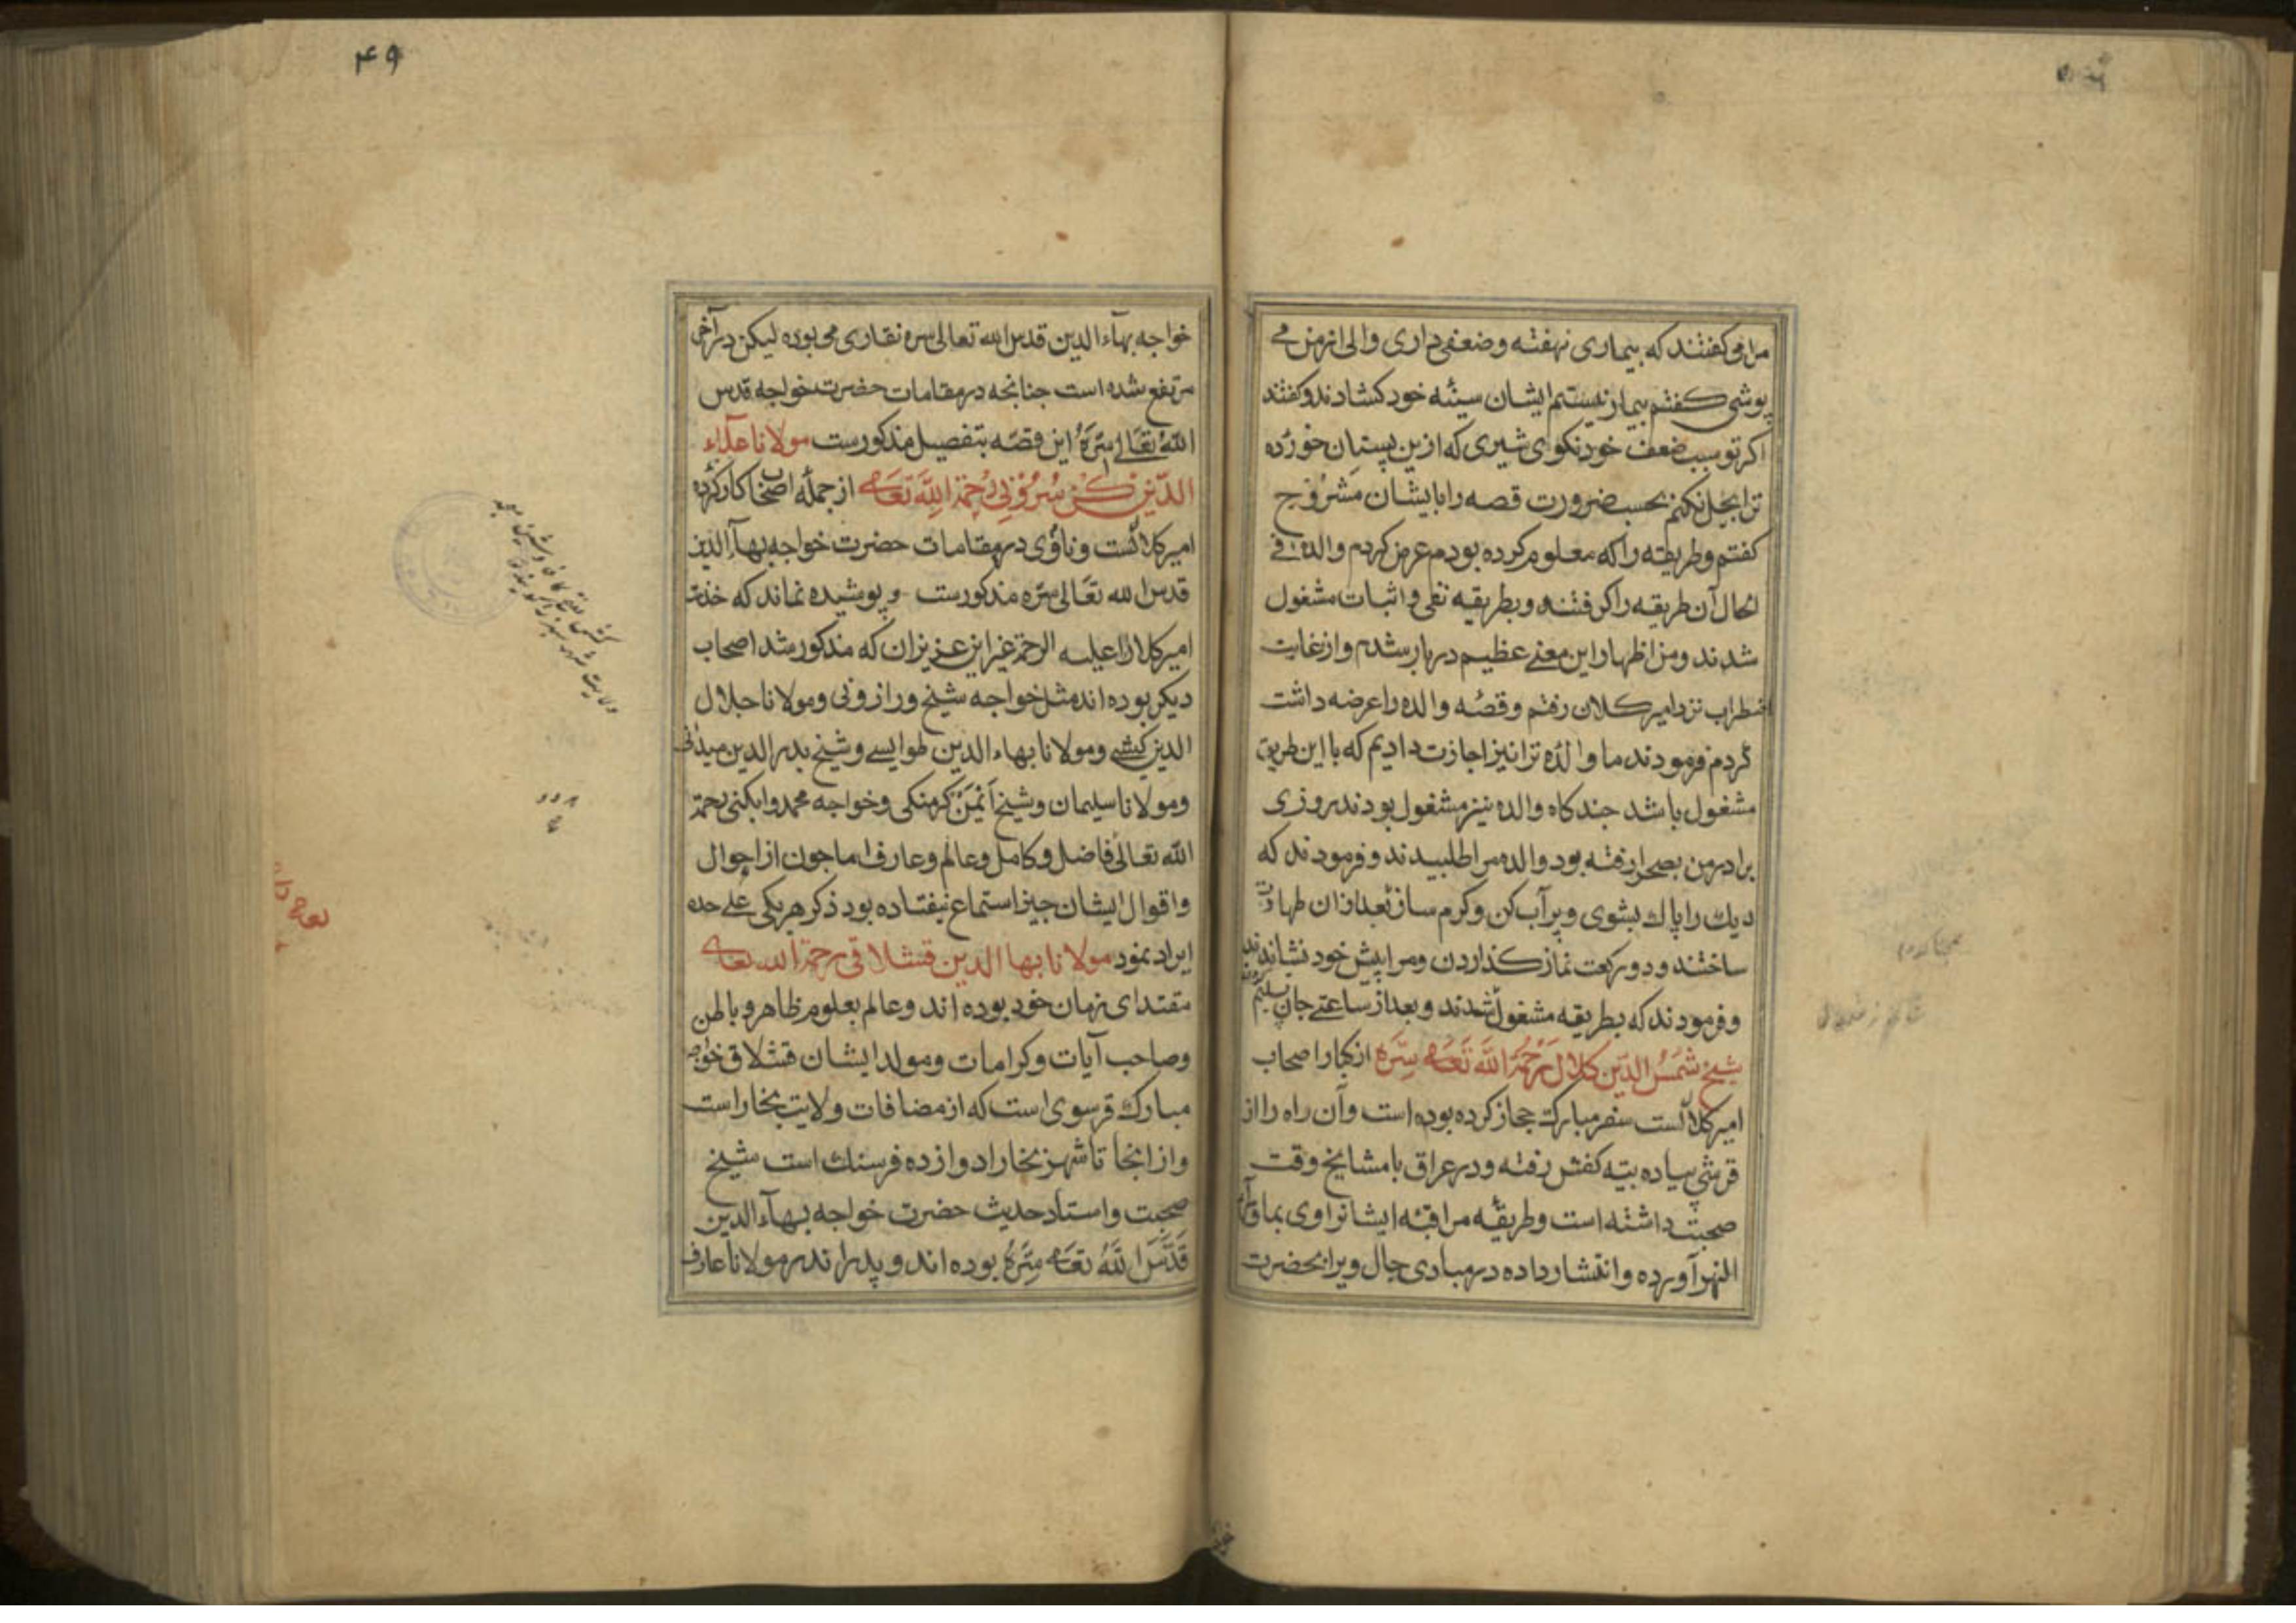 مرا می کفتند که بیماری نهفته و ضعفی داری والی از من می
پوشی کفتم بیمار نیستم ایشان سینه خود کشادند و کفتند
اکر تو سبب ضعف خود نکوی شیری که ازین پستان خورده
ترا بحل نکنم بحسب ضرورت قصه را بایشان مشروح
کفتم و طریقه را که معلوم کرده بودم عرض کردم والده فی
الحال آن طریقه را کرفتند و بطریقه نفی و اثبات مشغول
شدند و من از اظهار این معنے عظیم دربار شدم و از غایت
اضطراب نزد امیر کلان رفتم و قصه والده را عرضه داشت
کردم فرمودند ما والده ترا نیز اجازت دادیم که با این طریق
مشغول باشد چند کاه والده نیز مشغول بودند روزی
برادر من بصحرا رفته بود والده مرا طلبیدند و فرمودند که
دیك را پاك بشوی و پر آب کن و کرم ساز بعد ازان طهارت
ساختند و دو رکعت نماز کذاردن و مرا پیش خود نشاندند
و فرمودند که بطریقه مشغول شدند و بعد از ساعتے جان تسلیم کردند
شیخ شمس الدین کلال رحمة الله تعالی سره از کبار اصحاب
امیر کلالست سفر مبارك حجاز کرده بوده است و آن راه را از
قرشی پیاده بیته کفش رفته و در عراق با مشایخ وقت
صحبت داشته است و طریقه مراقبه ایشانرا وی بماوراء
النهر آورده و انتشار داده در مبادی حال ویرا بحضرت
۴۹
خواجه بهاء الدین قدس الله تعالی سره نقاری می بوده لیکن در آخر
مرتفع شده است چنانچه در مقامات حضرت خواجه قدس
الله تعالی سره این قصه بتفصیل مذکورست مولانا علاء
الدین کن سرونی رحمة الله تعالی از جمله اصحاب کار کرده
امیر کلالست و ناوی در مقامات حضرت خواجه بهاء الدین
قدس الله تعالی سره مذکورست و پوشیده نماند که خدمت
امیر کلال را علیه الرحمة غیر این عزیزان که مذکور شد اصحاب
دیکر بوده اند مثل خواجه شیخ ورازونی و مولانا جلال
الدین کشے و مولانا بهاء الدین طوایسے و شیخ بدر الدین میدانی
و مولانا سلیمان و شیخ امین کرمنکی و خواجه محمد وابکنی رحمة
الله تعالی فاضل و کامل و عالم و عارف اما چون از احوال
و اقوال ایشان چیز استماع نیفتاده بود ذکر هر یکی علی حده
ایراد نمود مولانا بها الدین قشلاقی رحمة الله تعالی
مقتدای زمان خود بوده اند و عالم بعلوم ظاهر و باطن
و صاحب آیات و کرامات و مولد ایشان قشلاق خواجه
مبارك قرسوی است که از مضافات ولایت بخاراست
و از انجا تا شهر بخارا دوازده فرسنك است شیخ
صحبت و استاد حدیث حضرت خواجه بهاء الدین
قدس الله تعالی سره بوده اند و پدر اندر مولانا عارف